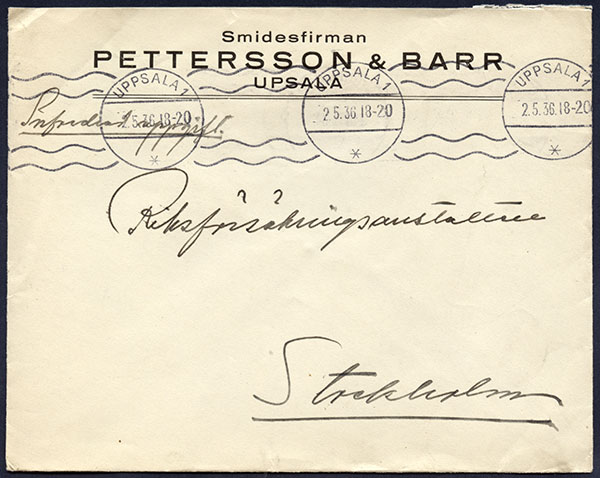 Smidesfirman
PETTERSSON & BARR
UPSALA
UPPSALA 1 UPPSALA 1 UPPSALA 1
2.5.36.18-20 2.5.36.18-20 2.5.36.18-20
uppgift.
Riksförsäkringsanstalten
Stockholm